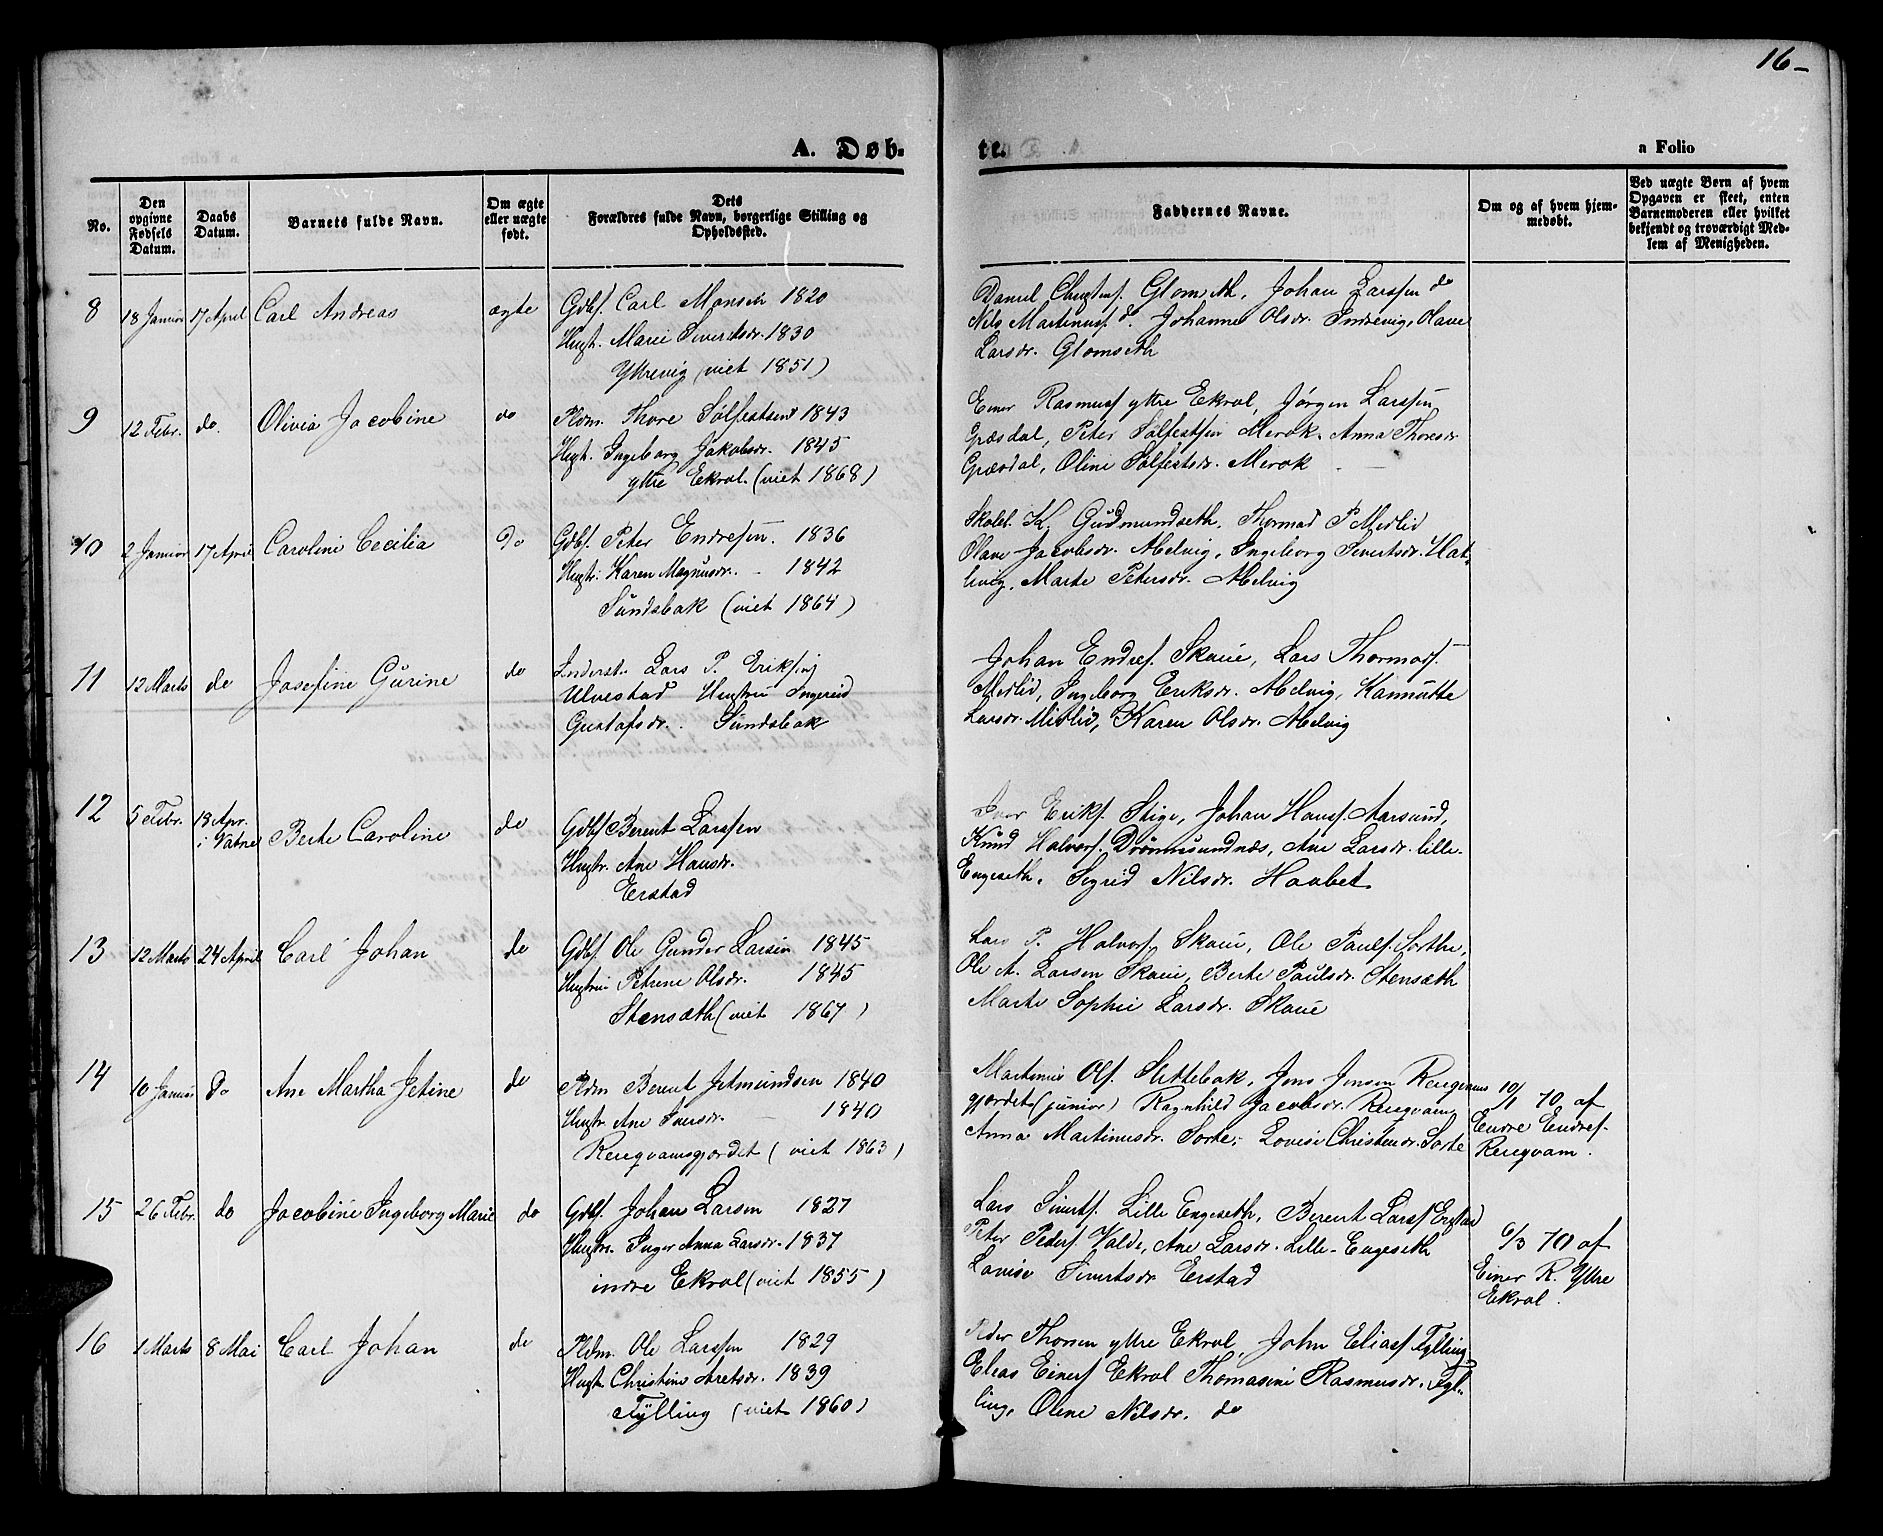 16-
A. Døb-
te.
a Folio
No.
Den
opgivne
Fødsels
Datum.
Daabs
Datum.
Barnets fulde Navn.
Om ægte
eller uægte
født.
Dets
Forældres fulde Navn, borgerlige Stilling og
Opholdssted.
Faddernes Navne.
Om og af hvem hjem-
medøbt.
Ved uægte Børn af hvem
Opgaven er skeet, enten
Barnemoderen eller hvilket
bekjendt og troværdigt Med-
lem af Menigheden.
8 18 Januar 17 April Carl Andreas ægte
Gdbs. Carl Monsen 1820
Hustr. Marie Siverthsdr. 1830
Yttrevig (viet 1851)
Daniel Glomseth, Johan Larssen do
Nils Martinuss. do. Johanne Olsdr. Indrevig, Olave
Larsdr. Glomseth
9 12 Febr. do. Olivia Jacobine do
Pldm. Thore Sølfestsen 1843
Hust. Ingeborg Jakobsdr. 1845
yttre Ekrol. (viet 1868)
Einer Rasmuss yttre Ekrol, Jørgen Larssen
Græsdal, Peter Sølfestsen Merok. Anna Thoresdr
Græsdal, Oline Sølfestsdr. Merok
10 2 Januar 17 April Caroline Cecilia Do
Gdbs. Peter Endresen. 1836
Hustr. Karen Magnusdr. - 1842
Sundsbak (viet 1864)
Skolel. K. Gudmundseth. Thormod P. Medlid
Olave Jacobsdr. Melvig, Ingeborg Sivertsdr. Hat-
levig, Marte Petersdr. Melvig
11 12 Marts do Josefine Gurine do
Inderst. Lars P. Eriksen
Ulvestad Hustru Ingereid
Gustafsdr. Sundsbak
Johan Endres. Skaue, Lars Thormods.
Medlid, Ingeborg Eriksdr. Melvig, Kanutte
Larsdr. Midlid, Karen Olsdr. Melvig
12 5 Febr. 18 Apr.
i Vatne Berte Caroline do
Gdbs Berent Larssen
Hustr. Ane Hansdr.
Erstad
Iver Eriks. Stige, Johan Hans. Aarsund,
Knud Halvors. Drønnesundnæs, Ane Larsdr. lille-
Engeseth. Sigrid Nilsdr. Haabet
13 12 Marts 24 April Carl Johan do
Gdbs. Ole Gunder Larsen 1845
Hustru Petrine Olsdr. 1845
Stensæth (viet 1867)
Lars P. Halvors. Skaue, Ole Pauls. Sorthe,
Ole A. Larsen Skaue, Berte Paulsdr. Stensæth
Marte Sophie Larsdr. Skaue
14 10 Januar Do Ane Martha Jetine do
Pldm Berent Jetmundsen 1840
Hustr Ane Iversdr. 1840
Renqvamsgjerdet (viet 1863)
Martinus Ols. Slettebak, Jens Jensen Renqvams
gjerdet (junior) Ragnhild Jacobsdr. Renqvam,
Anna Martinusdr. Sorte, Lovise Christensdr. Sorte
10/1 70 af
Endre Endres.
Renqvam.
15 26 Febr. do Jacobine Ingeborg Marie do
Gdbs. Johan Larsen 1827
Hustr. Inger Anna Larsdr. 1837
indre Ekrol (viet 1855)
Lars Siverts. Lille Engeseth, Berent Larss Erstad
Peter Peders. Valde, Ane Larsdr. Lille-Engeseth
Lovise Sivertsdr Erstad
6/3 70 af
Einer R. Yttre
Ekrol.
16 1 Marts 8 Mai Carl Johan do
Pldm. Ole Larssen 1829
Hustr. Christine Aretsdr. 1839
Tylling (viet 1860)
Peder Thorsen yttre Ekrol, John Eliass Tylling
Elias Einers Ekrol Thomasine Rasmusdr. Tyl-
ling, Oline Nilsdr. do